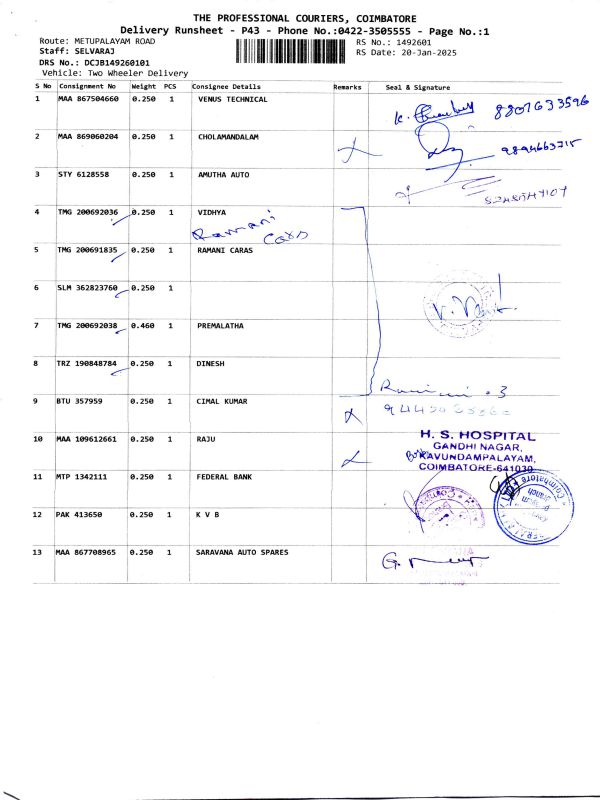 THE PROFESSIONAL COURIERS, COIMBATORE
Delivery Runsheet - P43 - Phone No.:0422-3505555 - Page No.:1
Route: METUPALAYAM ROAD RS No.: 1492601
Staff: SELVARAJ RS Date: 20-Jan-2025
DRS No.: DCJB149260101
Vehicle: Two Wheeler Delivery
S No Consignment No Weight PCS Consignee Details Remarks Seal & Signature
1 MAA 867504660 0.250 1 VENUS TECHNICAL 8807633596
2 MAA 869060204 0.250 1 CHOLAMANDALAM 9894663715
3 STY 6128558 0.250 1 AMUTHA AUTO
4 TMG 200692036 0.250 1 VIDHYA
Ramani Cars
5 TMG 200691835 0.250 1 RAMANI CARAS
6 SLM 362823760 0.250 1
7 TMG 200692038 0.460 1 PREMALATHA
8 TRZ 190848784 0.250 1 DINESH
9 BTU 357959 0.250 1 CIMAL KUMAR
10 MAA 109612661 0.250 1 RAJU
H. S. HOSPITAL
GANDHI NAGAR,
KAVUNDAMPALAYAM,
COIMBATORE-641030
11 MTP 1342111 0.250 1 FEDERAL BANK
12 PAK 413650 0.250 1 K V B
13 MAA 867708965 0.250 1 SARAVANA AUTO SPARES